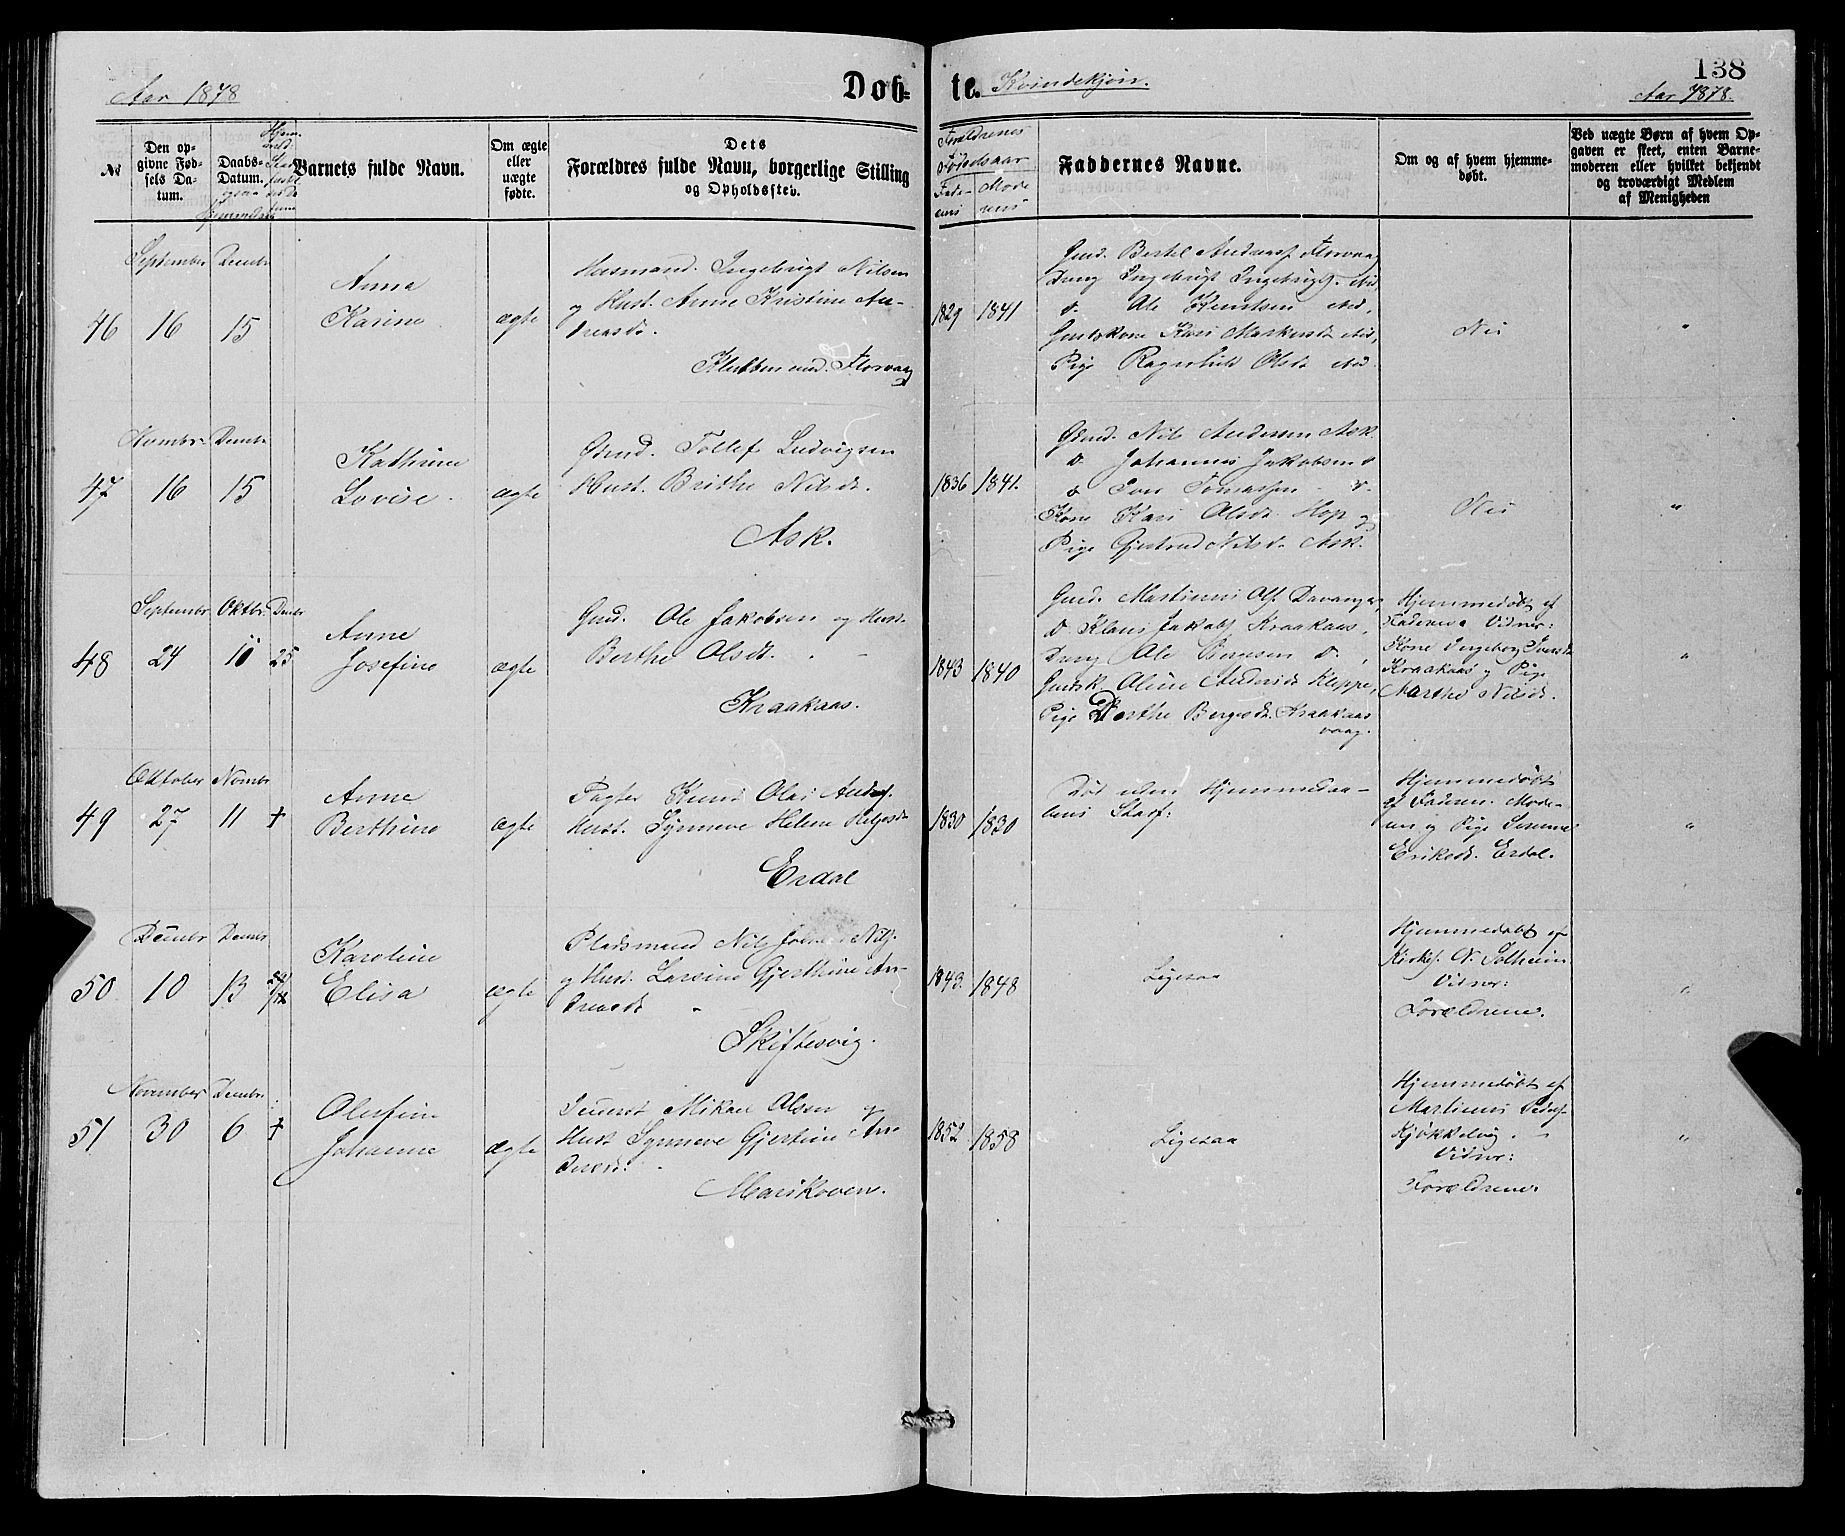 138
Aar 1878
Döb-
te.
Kvindekjøn.
Aar 1878.
№
Den op-
givne Fød-
sels Da-
tum.
Daabs-
Datum.
Barnets fulde Navn.
Om ægte
eller
uægte
fødte.
Dets
Forældres fulde Navn, borgerlige Stilling
og Opholdssted.
Forældrenes
Fødselsaar
Fade-
rens
Mode
rens
Faddernes Navne.
Om og af hvem hjemme-
døbt.
Ved uægte Børn af hvem Op-
gaven er skeet, enten Barne-
moderen eller hvilket bekjendt
og troværdigt Medlem
af Menigheden
46
September
16
Decmbr
15
Anna
Karine
ægte
Husmand. Ingebrigt Nilsen
og Hust. Anne Kristine An-
dreasd.
Klubben und. Florvaag
1829
1841
Gmd. Berthel Florvaag
Drng Ingebrigt Ingebrigts. ibid
D. Ole Knutsen ibid,
Kari Markusd. ibid,
Pige Ragnhild Olsd. ibid.
Nei
"
47
Novmbr
16
Decmbr
15
Kathrine
Lovise.
ægte
Gbmd. Tollef Ludvigsen
Hust. Brithe Nilsd.
Ask.
1836
1841.
Gbmd. Nils Andersen Ask.
D. Johannes Jakobsen D
D Iver Tomassen - D.
Kone Kari Olsd. Hop og
Pige Gjertrud Nilsd. Ask.
Nei
"
48
Septembr
24
Oktbr.
11
Decbr
25
Anne
Josefine
ægte
Gmd. Ole Jakobsen og Hust.
Berthe Olsd.
Kraakaas.
1843
1840
Gmd. Martinus Ols. Davanger,
D. Klaus Jakobs. Kraakaas,
Drng Ole Bergesen D,
Oline Andersd. Kleppe,
Pige Dorthe Bergesd. Kraakaas
vaag.
Hjemmedøbt af
Faderen. Vidner:
Kone Ingeborg Iversd.
Kraakaas og Pige
Marthe Nilsd.
"
49
Oktober
27
Novmbr
11
+
Anne
Berthine
ægte
Pagter Knud Olai Anders.
Hust. Synneve Helene Helgesd.
Erdal
1830
1830
Død uden Hjemmedaa-
bens Stadf:
Hjemmedøbt
af Faderen. Mode-
ren og Pige
Eriksd. Erdal.
"
50
Decmbr
10
Decmbr
13
Karoline
Elisa
ægte
Pladsmand Nils
og Hust. Larsine Gjerthine An-
dreasd.
Skiftesvig.
1843.
1848
Ligesaa
Hjemmedøbt af
Kirkes. N. Solheim
Vidner:
Forældrene.
"
51
November
30
Decmbr.
6
+
Olufine
Johanne
ægte
Mikael Olsen og
Hust Synneve Gjertine An
dreasd.
Marikoven.
1852
1858
Ligesaa
Hjemmedøbt af
Martinus Peders.
Kjøkkelvig.
Vidner:
Forældrene.
"